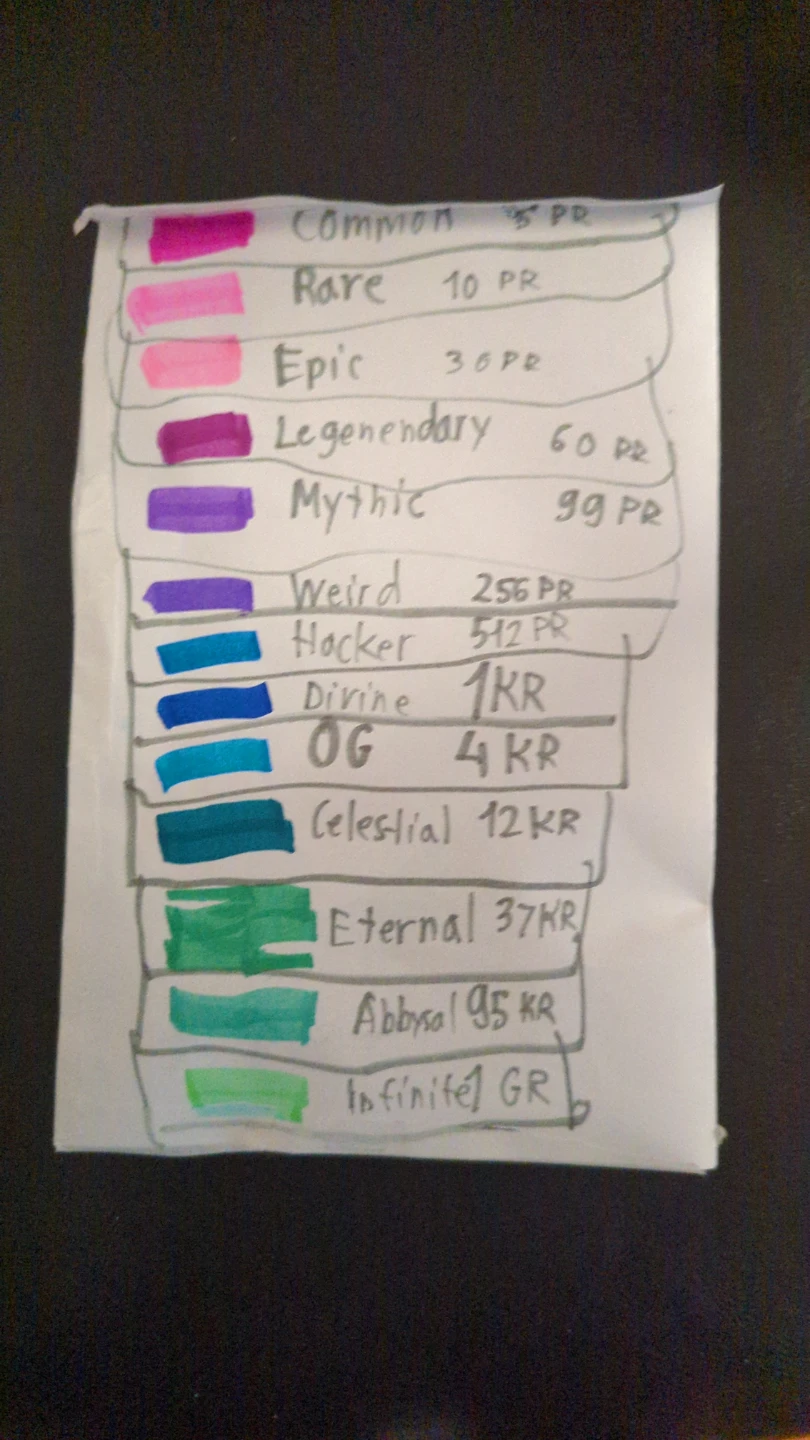 Common 5 PR
Rare 10 PR
Epic 30 PR
Legenendary 60 PR
Mythic 99 PR
Weird 256 PR
Hacker 512 PR
Divine 1KR
OG 4 KR
Celestial 12KR
Eternal 37KR
Abbysal 95 KR
Infinite 1 GR